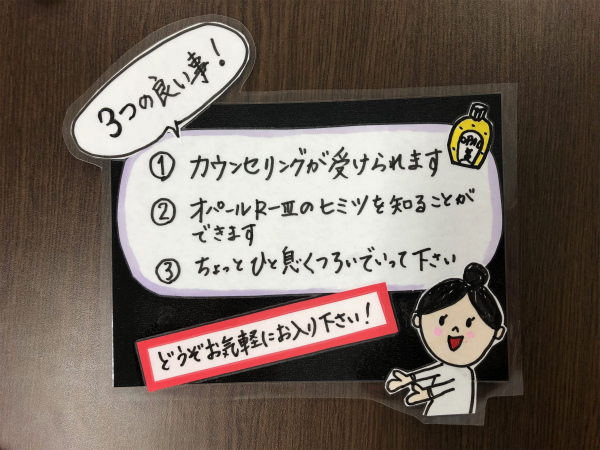 3つの良い事！
① カウンセリングが受けられます
② オパールR-Ⅲのヒミツを知ることが
できます
③ ちょっとひと息くつろいでいって下さい
どうぞお気軽にお入り下さい！
OPAL